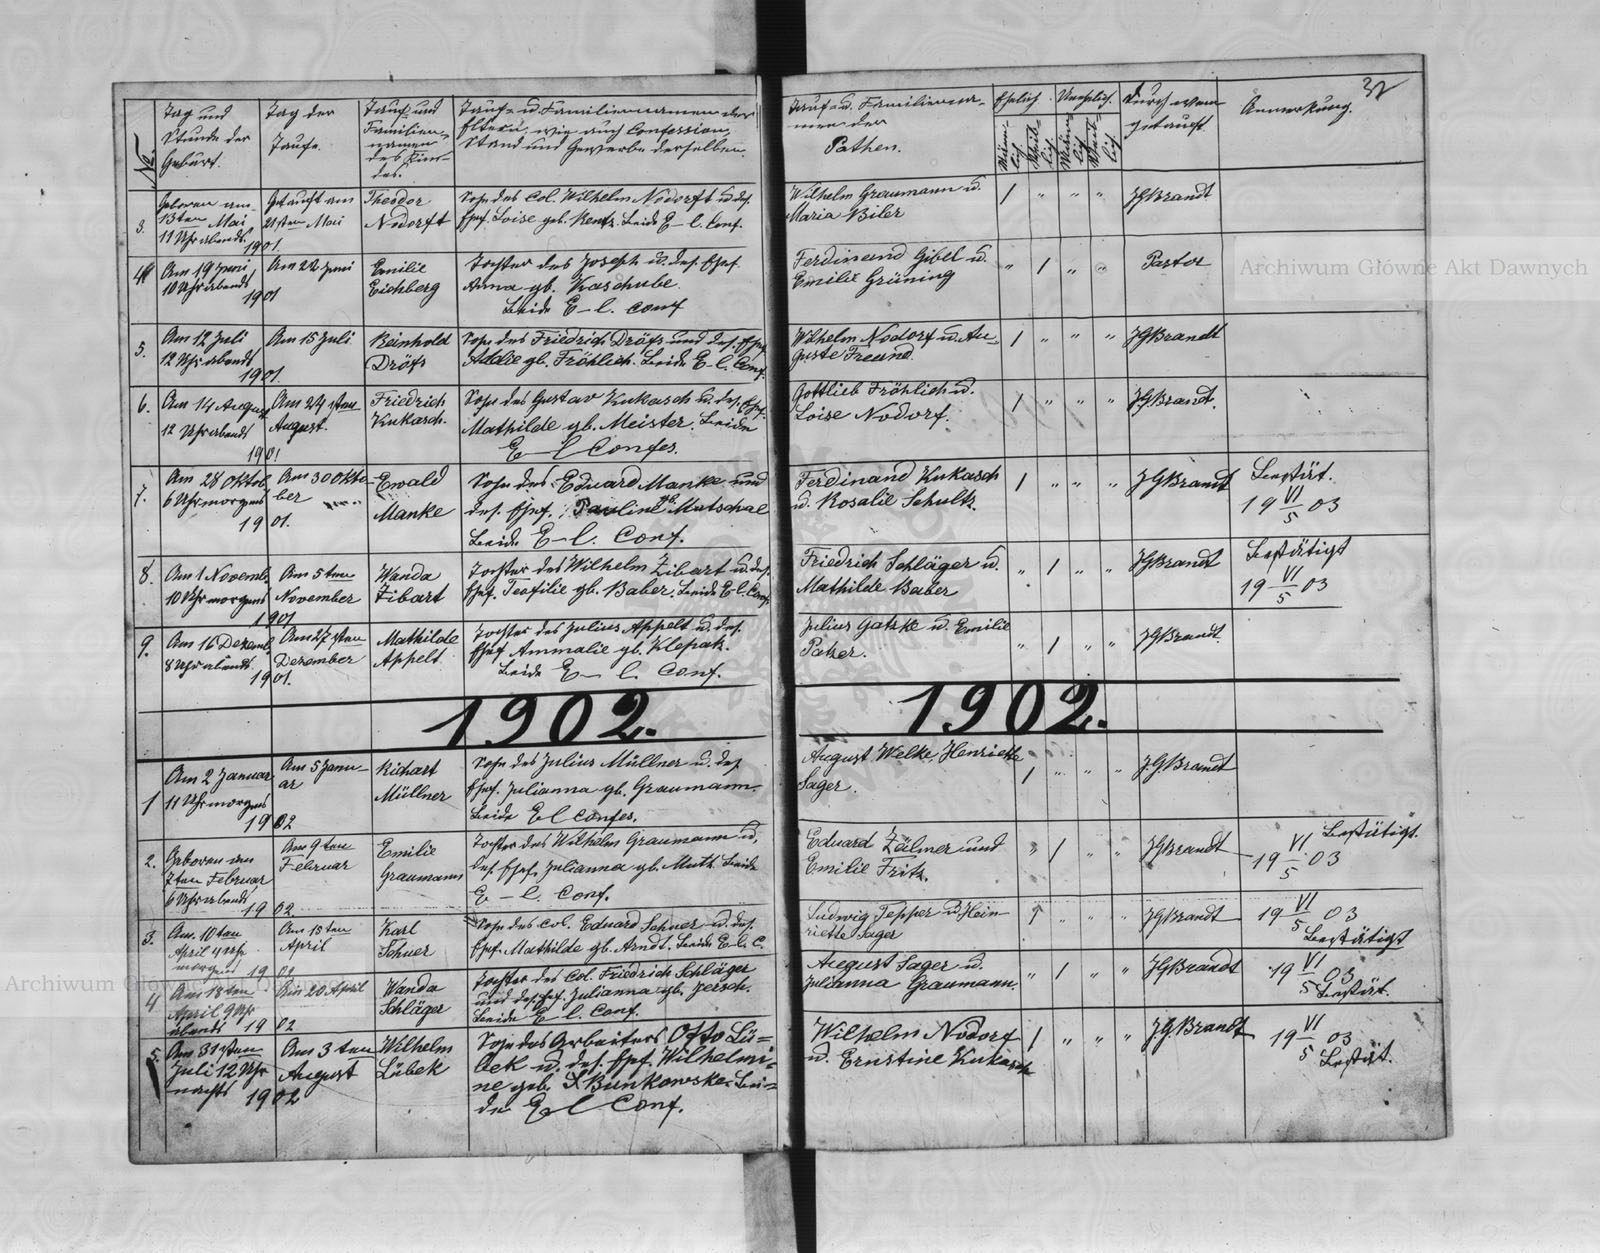 32
No.
Tag und
Stunde der
Geburt.
Tag der
Taufe.
Tauf- und
Familien-
namen
des Kin-
des.
Tauf- u. Familiennamen der
Eltern, wie auch Confession,
Stand und Gewerbe derselben.
Tauf- u. Familienna-
men der
Pathen.
Ehelich.
Unehelich.
Männ-
lich
Weib-
lich
Männ-
lich
Weib-
lich
Durch wem
getauft.
Anmerkung.
3.
Geboren am
13ten Mai
11 Uhr abends
1901.
Getauft am
21sten Mai
Theodor
Nodorft
Sohn des Col. Wilhelm Nodorft u. des.
Ehef. Loise geb. Rentz. Beide E–l. Conf.
Wilhelm Graumann u.
Maria Biler
1 " " "
JGBrandt
4
Am 19 Juni
10 Uhr abends
1901
Am 22 Juni
Emilie
Eichberg
Tochter des Joseph u. des. Ehef.
Anna gb. Kaschube.
Beide E–l. Conf
Ferdinand Gibel u.
Emilie Grüning
" 1 " "
Pastor
5.
Am 12 Juli
12 Uhr abends
1901.
Am 15 Juli
Reinhold
Dröfs
Sohn des Friedrich Dröfs und des. Ehef.
Addre gb. Fröhlich. Beide E–l. Conf.
Wilhelm Nodorf u. Au-
guste Freund.
1 " " "
JGBrandt
6.
Am 14 August
12 Uhr abends
1901
Am 24 sten
August.
Friedrich
Kukasch.
Sohn des Gustav Kukasch u. des. Ehef.
Mathilde gb. Meister. Beide
E–l Confes.
Gottlieb Fröhlich u.
Loise Nodorf.
1 " " "
JGBrandt.
7.
Am 28 Oktob.
6 Uhr morgens
1901.
Am 30 Okto-
ber
Ewald
Manke
Sohn des Eduard Manke und
des. Ehef. Pauline gb. Mutschal
Beide E–l. Conf.
Ferdinand Kukasch
u. Rosalie Schultz.
1 " " "
JGBrandt
Bestät.
19 VI/5 03
8.
Am 1 Novemb.
10 Uhr morgens
1901
Am 5 ten
November
Wanda
Zibart
Tochter des Wilhelm Zibart u. des.
Ehef. Teofilie gb. Baber. Beide E l. Conf.
Friedrich Schläger u.
Mathilde Baber
" 1 " "
JGBrandt
Bestätigt
19 VI/5 03
9.
Am 16 Dezemb.
8 Uhr abends
1901.
Am 27 sten
Dezember
Mathilde
Appelt
Tochter des Julius Appelt u. des.
Ehef Ammalie gb. Klepak.
Beide E–l. Conf.
Julius Gatzke u. Emilie
Patzer.
" 1 " "
JGBrandt
1902.
1902.
1
Am 2 Januar
11 Uhr morgens
1902
Am 5 Janu-
ar
Richart
Müllner
Sohn des Julius Müllner u. des
Ehef. Julianna gb. Graumann
Beide E l Confes.
August Welke, Henriette
Sager.
1 " " "
J.G.Brandt
2.
Geboren am
7ten Februar
6 Uhr abends
1902.
Am 9 ten
Februar
Emilie
Graumann
Tochter des Wilhelm Graumann u.
des. Ehef. Julianna gb. Muth Beide
E–l. Conf.
Eduard Zälmer und
Emilie Fritz.
" 1 " "
JGBrandt
Bestätigt.
19 VI/5 03
3.
Am 10 ten
April 4 Uhr
morgens 1902
Am 15 ten
April
Karl
Schuer
Sohn des Col. Eduard Schuer u. des.
Ehef. Mathilde gb. Arndt. Beide E. l. C.
Ludwig Tepper u. Hein
riette Sager
1 " " "
JGBrandt
19 VI/5 03
Bestätigt
4
Am 18 ten
April 9 Uhr
abends 1902
Am 20 April
Wanda
Schläger
Tochter des Col. Friedrich Schläger
und des. Ehef. Julianna gb. Jersch.
Beide E–l. Conf.
August Sager u.
Julianna Graumann.
" 1 " "
JGBrandt
19 VI/5 03
Bestät.
5.
Am 31 sten
Juli 12 Uhr
nachts 1902
Am 3 ten
August
Wilhelm
Lübek
Sohn des Arbeiters Otto Lü-
bek u. des. Ehef. Wilhelmi-
ne geb. Bunkowske Bei-
de E l Conf.
Wilhelm Nodorf
u. Ernstine Kukasch
1 " " "
J.G.Brandt
19 VI/5 03
Bestät.
Archiwum Główne Akt Dawnych